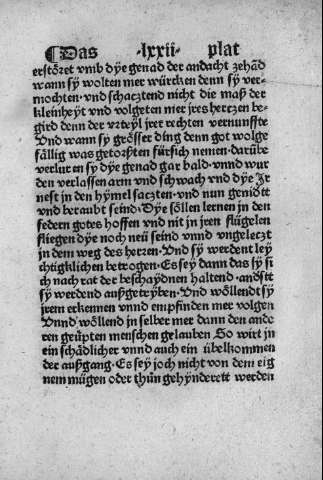 ¶Das -lxxii- plat
erstöret vmb dÿe genad der andacht zehãd
wann sÿ wolten mer würcken denn sÿ ver-
mochten · vnd schacztend nicht die maß der
kleinheyt vnd volgeten mer jres herczen be-
gird denn der vrteyl jrer rechten vernunffte
Vnd wann sy grösser ding denn got wolge
fällig was getorsten fürsich nemen · darũbe
verluren sy dÿe genad gar bald · vnnd wur
den verlassen arm vnd schwach vnd dÿe Jr
nest in den hÿmel saczten · vnd nun genidert
vnd beraubt seind · Dÿe söllen lernen in den
federn gotes hoffen vnd nit in jren flügelen
fliegen dÿe noch neü seind vnnd vngelerczt
in dem weg des herzen · Vnd sÿ werdent leÿ
chtigklichen betrogen · Es seÿ dann das sÿ si
ch nach rat der beschaÿdnen haltend · andstt
sÿ werdend außgetryben · Vnd wöllendt sÿ
jrem erkennen vnnd empfinden mer volgen
Vnnd wöllend jn selber mer dann den ande
ren geüpten menschen gelauben So wirt jn
ein schädlicher vnnd auch ein übelkommen
der außgang · Es sey joch nicht von dem eig
nem mügen oder thůn gehÿnderett werden